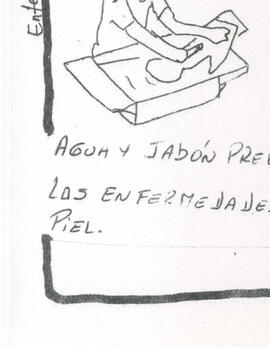 Ente
AGUA Y JABÓN PRE
LAS ENFERMEDADE
PIEL.